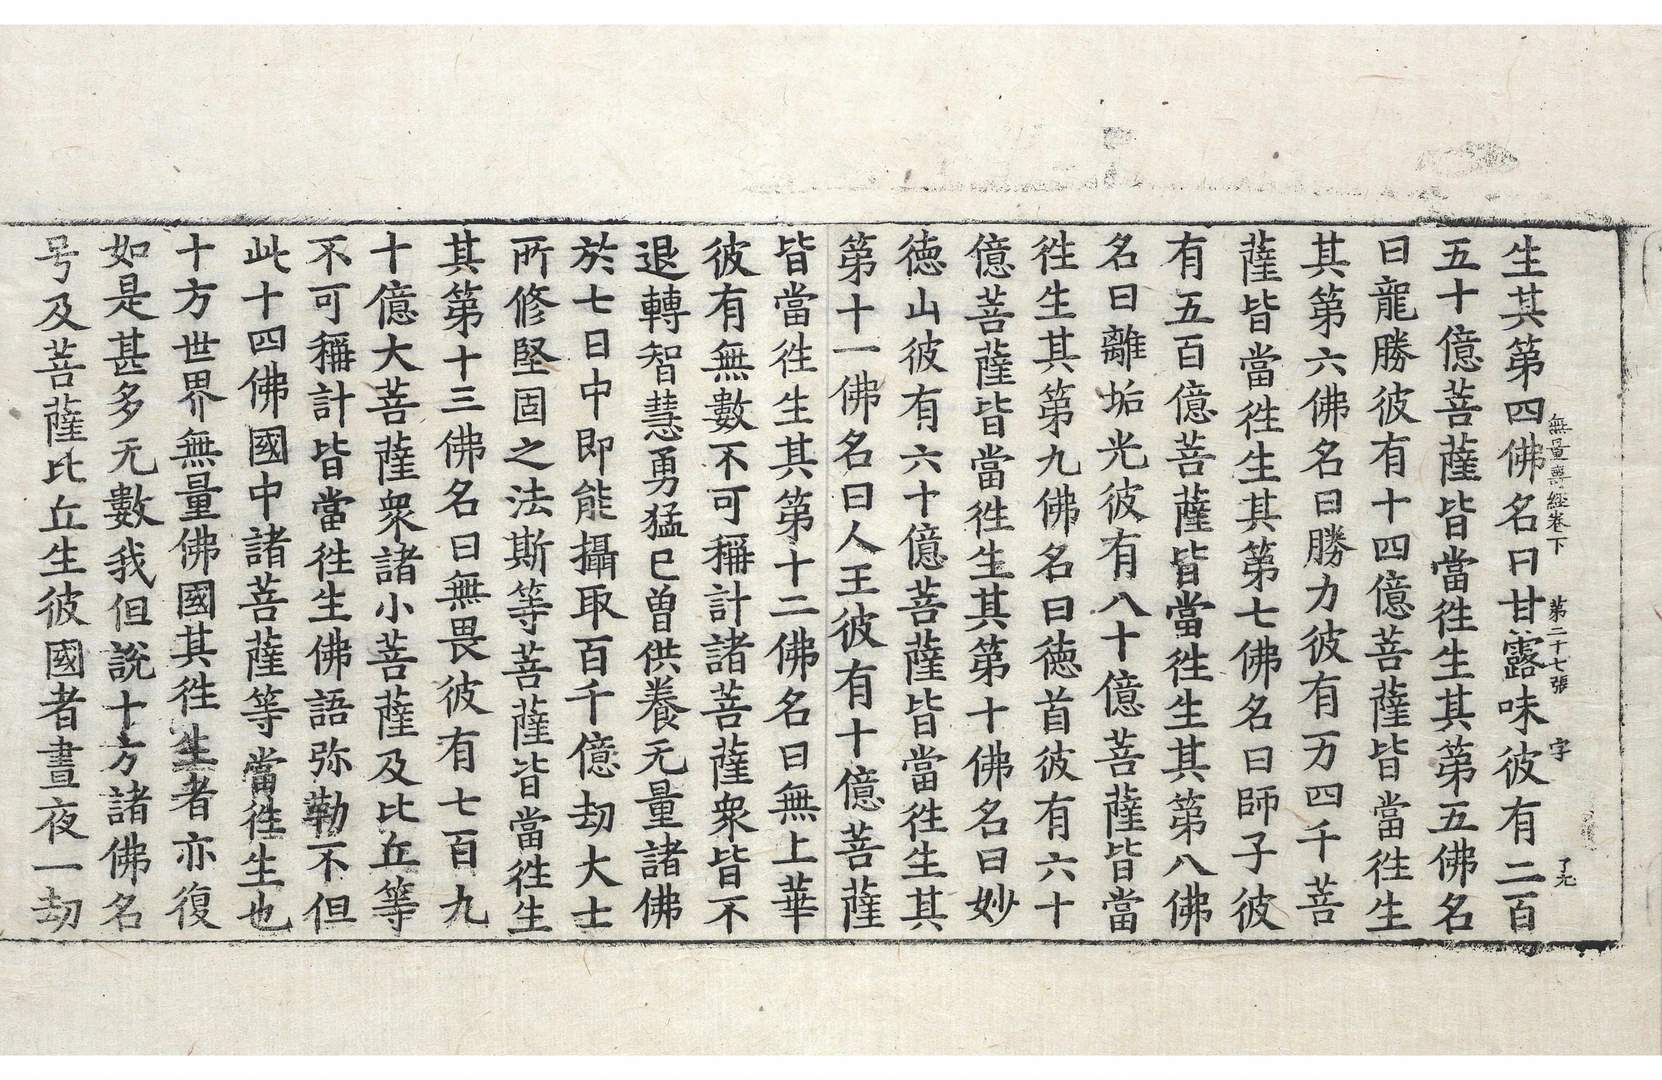 無量壽經卷下 第二十七張 字 了元
生其第四佛名曰甘露味彼有二百
五十億菩薩皆當徃生其第五佛名
曰龍勝彼有十四億菩薩皆當徃生
其第六佛名曰勝力彼有万四千菩
薩皆當徃生其第七佛名曰師子彼
有五百億菩薩皆當徃生其第八佛
名曰離垢光彼有八十億菩薩皆當
徃生其第九佛名曰徳首彼有六十
億菩薩皆當徃生其第十佛名曰妙
徳山彼有六十億菩薩皆當徃生其
第十一佛名曰人王彼有十億菩薩
皆當徃生其第十二佛名曰無上華
彼有無數不可稱計諸菩薩衆皆不
退轉智慧勇猛已曽供養无量諸佛
於七日中即能攝取百千億劫大士
所修堅固之法斯等菩薩皆當徃生
其第十三佛名曰無畏彼有七百九
十億大菩薩衆諸小菩薩及比丘等
不可稱計皆當徃生佛語弥勒不但
此十四佛國中諸菩薩等當徃生也
十方世界無量佛國其徃生者亦復
如是甚多无數我但說十方諸佛名
号及菩薩比丘生彼國者晝夜一劫